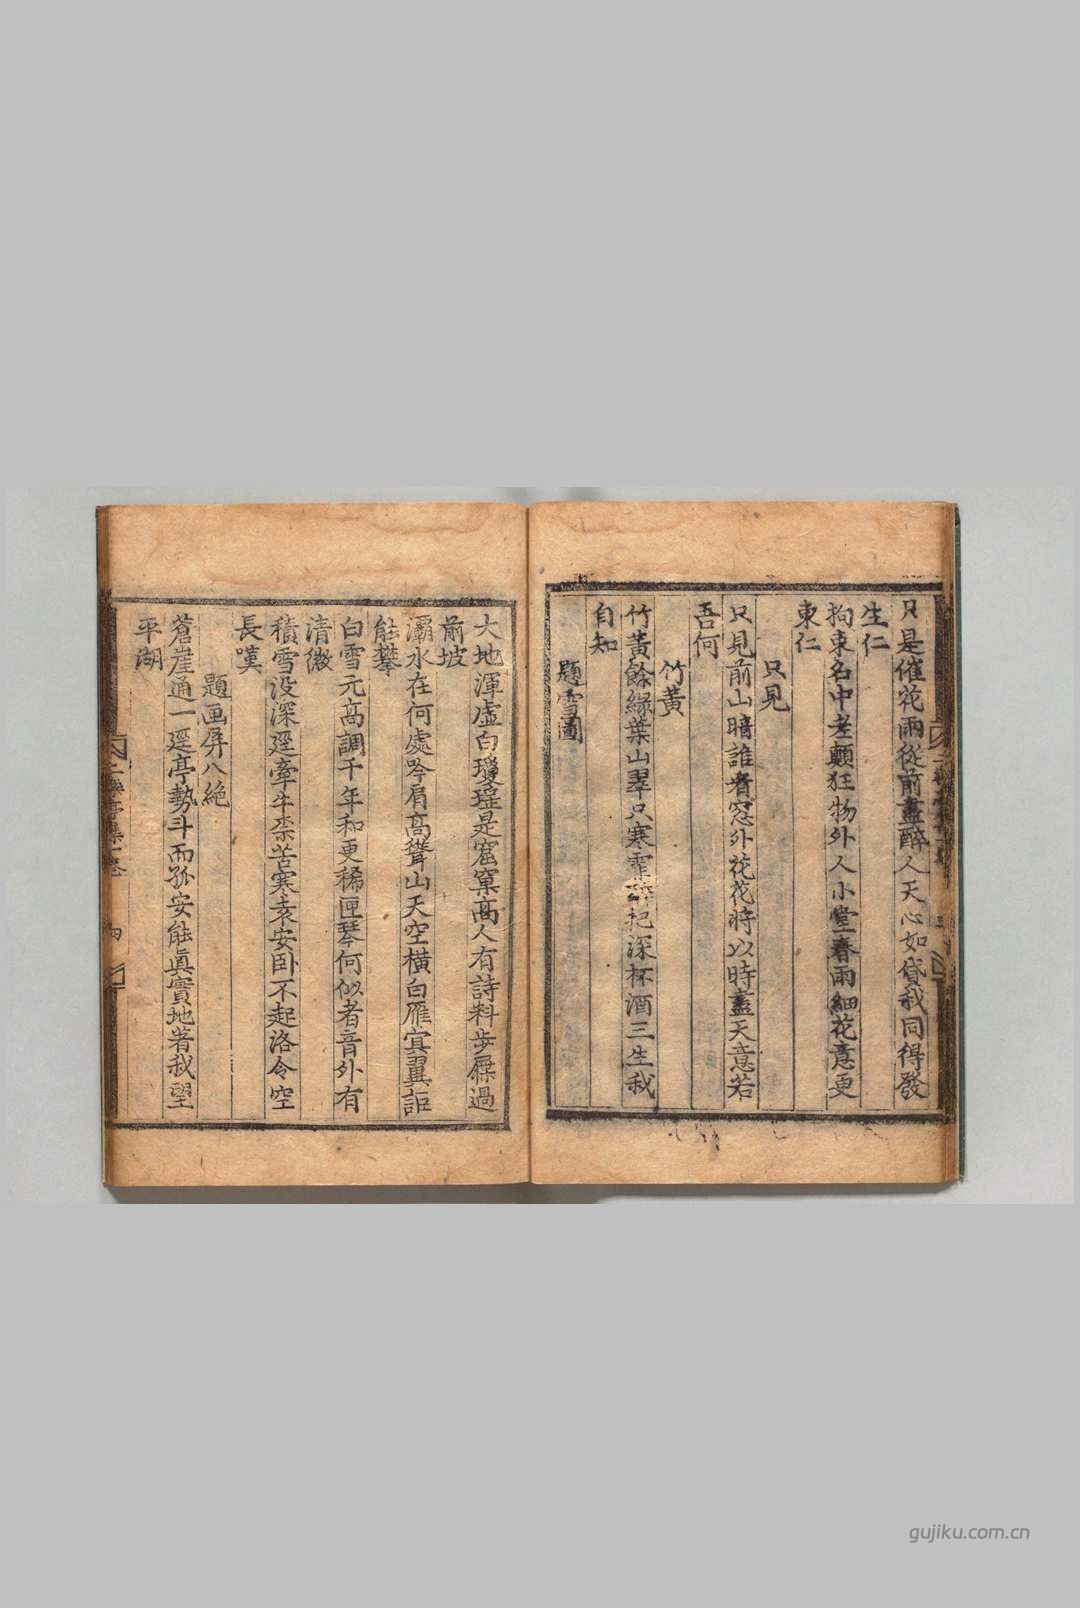 只是催花雨從前盡醉人天心如貸我同得發
生仁
拘束名中老顛狂物外人小堂春雨細花意更
東仁
只見
只見前山暗誰看窓外花花將以時盡天意若
吾何
竹黃
竹黃餘綠葉山翠只寒霏 把深杯酒三生我
自知
題雪圖
大地渾虛白瓊瑤是窟窠高人有詩料步屧過
前坡
灞水在何處吟肩高聳山天空橫白雁寘翼詎
能攀
白雪元高調千年和更稀匣琴何似者音外有
清徽
積雪没深逕牽牛柰苦寒袁安卧不起洛令空
長嘆
題画屏八絶
蒼崖通一逕亭勢斗而孤安能眞實地著我望
平湖
二樂亭集一卷 四
gujiku.com.cn